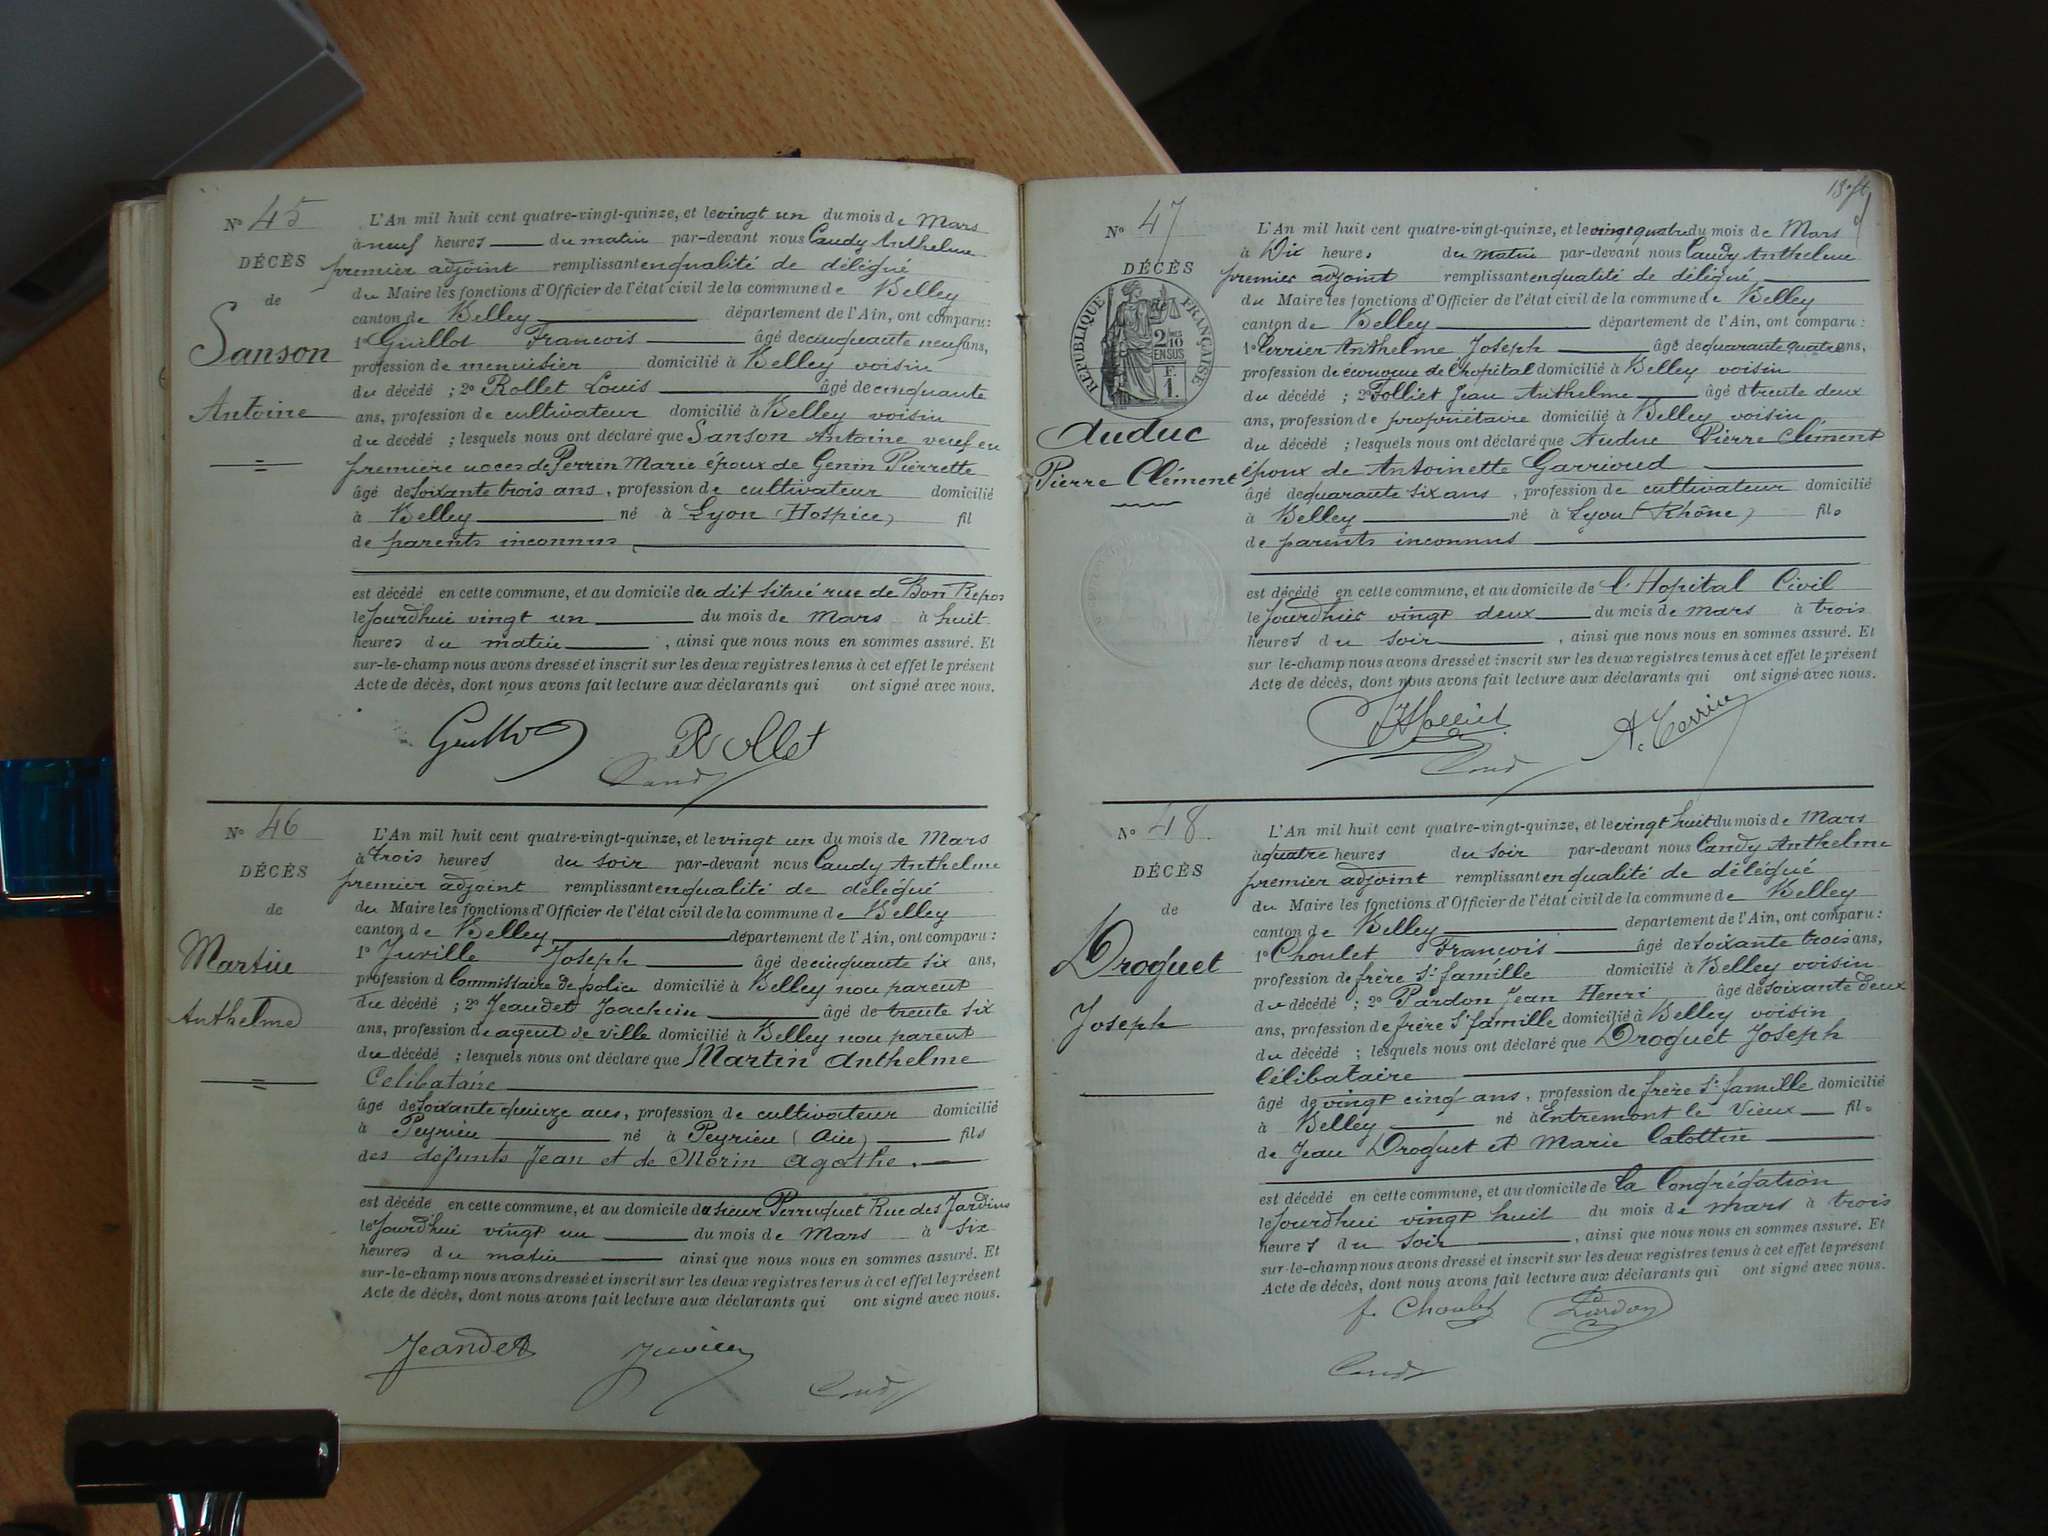 N° 45
DÉCÈS
de
Sanson
Antoine
L'An mil huit cent quatre-vingt-quinze, et le vingt un du mois de Mars
à neuf heures du matin par-devant nous Caudy Anthelme
premier adjoint remplissant en qualité de délégué
du Maire les fonctions d'Officier de l'état civil de la commune de Belley
canton de Belley département de l'Ain, ont comparu:
1° Guillot François âgé de cinquante neuf ans,
profession de menuisier domicilié à Belley voisin
du décédé ; 2° Rollet Louis âgé de cinquante
ans, profession de cultivateur domicilié à Belley voisin
du décédé ; lesquels nous ont déclaré que Sanson Antoine veuf en
première noces de Perrin Marie époux de Genin Pierrette
âgé de soixante trois ans, profession de cultivateur domicilié
à Belley né à Lyon (Hospice) fil
de parents inconnus
est décédé en cette commune, et au domicile du dit situé rue de Bon Repos
le jourdhui vingt un du mois de Mars à huit
heures du matin, ainsi que nous nous en sommes assuré. Et
sur-le-champ nous avons dressé et inscrit sur les deux registres tenus à cet effet le présent
Acte de décès, dont nous avons fait lecture aux déclarants qui ont signé avec nous.
Guillot Rollet
Caudy
N° 46
DÉCÈS
de
Martin
Anthelme
L'An mil huit cent quatre-vingt-quinze, et le vingt un du mois de Mars
à trois heures du soir par-devant nous Caudy Anthelme
premier adjoint remplissant en qualité de délégué
du Maire les fonctions d'Officier de l'état civil de la commune de Belley
canton de Belley département de l'Ain, ont comparu:
1° Juville Joseph âgé de cinquante six ans,
profession d Commissaire de police domicilié à Belley non parent
du décédé ; 2° Jeandet Joachim âgé de trente six
ans, profession de agent de ville domicilié à Belley non parent
du décédé ; lesquels nous ont déclaré que Martin Anthelme
Célibataire
âgé de soixante quinze ans, profession de cultivateur domicilié
à Peyrieu né à Peyrieu (Ain) fils
des défunts Jean et de Morin Agathe.
est décédé en cette commune, et au domicile du sieur Perruquet Rue des Jardins
le jourd'hui vingt un du mois de Mars à six
heures du matin ainsi que nous nous en sommes assuré. Et
sur-le-champ nous avons dressé et inscrit sur les deux registres tenus à cet effet le présent
Acte de décès, dont nous avons fait lecture aux déclarants qui ont signé avec nous.
Jeandet Juville Caudy
N° 47
DÉCÈS
de
RÉPUBLIQUE FRANÇAISE
2/10
EN SUS
F.
1.
Auduc
Pierre Clément
L'An mil huit cent quatre-vingt-quinze, et le vingt quatre du mois de Mars
à Dix heures du matin par-devant nous Caudy Anthelme
premier adjoint remplissant en qualité de délégué
du Maire les fonctions d'Officier de l'état civil de la commune de Belley
canton de Belley département de l'Ain, ont comparu:
1° Terrier Anthelme Joseph âgé de quarante quatre ans,
profession de économe de l'hopital domicilié à Belley voisin
du décédé ; 2° Folliet Jean Anthelme âgé d trente deux
ans, profession de propriétaire domicilié à Belley voisin
du décédé ; lesquels nous ont déclaré que Auduc Pierre Clément
époux de Antoinette Garrioud
âgé de quarante six ans, profession de cultivateur domicilié
à Belley né à Lyon (Rhône) fils
de parents inconnus
est décédé en cette commune, et au domicile de l'Hopital Civil
le jourdhui vingt deux du mois de mars à trois
heures du soir, ainsi que nous nous en sommes assuré. Et
sur-le-champ nous avons dressé et inscrit sur les deux registres tenus à cet effet le présent
Acte de décès, dont nous avons fait lecture aux déclarants qui ont signé avec nous.
JAFolliet A. Terrier
Caudy
N° 48
DÉCÈS
de
Droguet
Joseph
L'An mil huit cent quatre-vingt-quinze, et le vingt huit du mois de Mars
à quatre heures du soir par-devant nous Caudy Anthelme
premier adjoint remplissant en qualité de délégué
du Maire les fonctions d'Officier de l'état civil de la commune de Belley
canton de Belley département de l'Ain, ont comparu:
1° Choulet François âgé de soixante trois ans,
profession de frère Ste famille domicilié à Belley voisin
du décédé ; 2° Pardon Jean Henri âgé de soixante deux
ans, profession de frère Ste famille domicilié à Belley voisin
du décédé ; lesquels nous ont déclaré que Droguet Joseph
Célibataire
âgé de vingt cinq ans, profession de frère Ste famille domicilié
à Belley né à Entremont le Vieux fils
de Jean Droguet et Marie Calottin
est décédé en cette commune, et au domicile de la Congrégation
le jourdhui vingt huit du mois de mars à trois
heures du soir, ainsi que nous nous en sommes assuré. Et
sur-le-champ nous avons dressé et inscrit sur les deux registres tenus à cet effet le présent
Acte de décès, dont nous avons fait lecture aux déclarants qui ont signé avec nous.
f. Choulet Pardon
Caudy